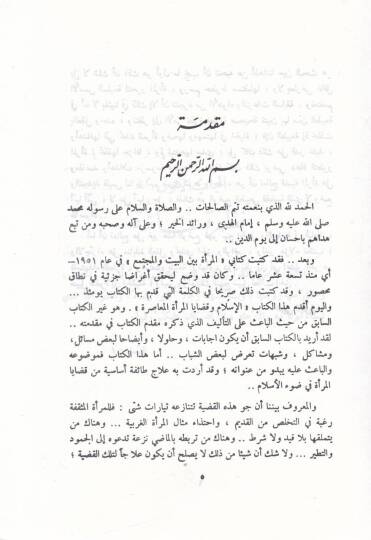 مقدمة
بسم الله الرحمن الرحيم
الحمد لله الذي بنعمته تتم الصالحات .. والصلاة والسلام على رسوله محمد
صلى الله عليه وسلم ، إمام الهدى ، ورائد الخير ؛ وعلى آله وصحبه ومن تبع
هداهم باحسان إلى يوم الدين ..
وبعد .. فقد كتبت كتابي « المرأة بين البيت والمجتمع » في عام ١٩٥١–
أي منذ تسعة عشر عاما .. وكان قد وضع ليحقق أغراضها جزئية في نطاق
محصور ، وقد كتبت ذلك صريحا في الكلمة التي قدم بها الكتاب يومئذ ...
واليوم أقدم هذا الكتاب « الإسلام وقضايا المرأة المعاصرة » .. وهو غير الكتاب
السابق من حيث الباعث على التأليف الذي ذكره مقدم الكتاب في مقدمته ..
لقد أريد بالكتاب السابق أن يكون اجابات ، وحلولا ، وأيضاحا لبعض مسائل،
ومشاكل ، وشبهات تعرض لبعض الشباب .. أما هذا الكتاب فموضوعه
والباعث عليه يبدو من عنوانه ؛ وقد أردت به علاج طائفة أساسية من قضايا
المرأة في ضوء الأسلام ..
والمعروف بيننا أن جو هذه القضية تتنازعه تيارات شتى : فللمرأة المثقفة
رغبة في التخلص من القديم ، واحتذاء مثال المرأة الغربية ... وهناك من
يتملقها بلا قيد ولا شرط .. وهناك من تربطه بالماضي نزعة تدعوه إلى الجمود
والتطير ... ولا شك أن شيئا من ذلك لا يصلح أن يكون علاجاً لتلك القضية ؛
٥